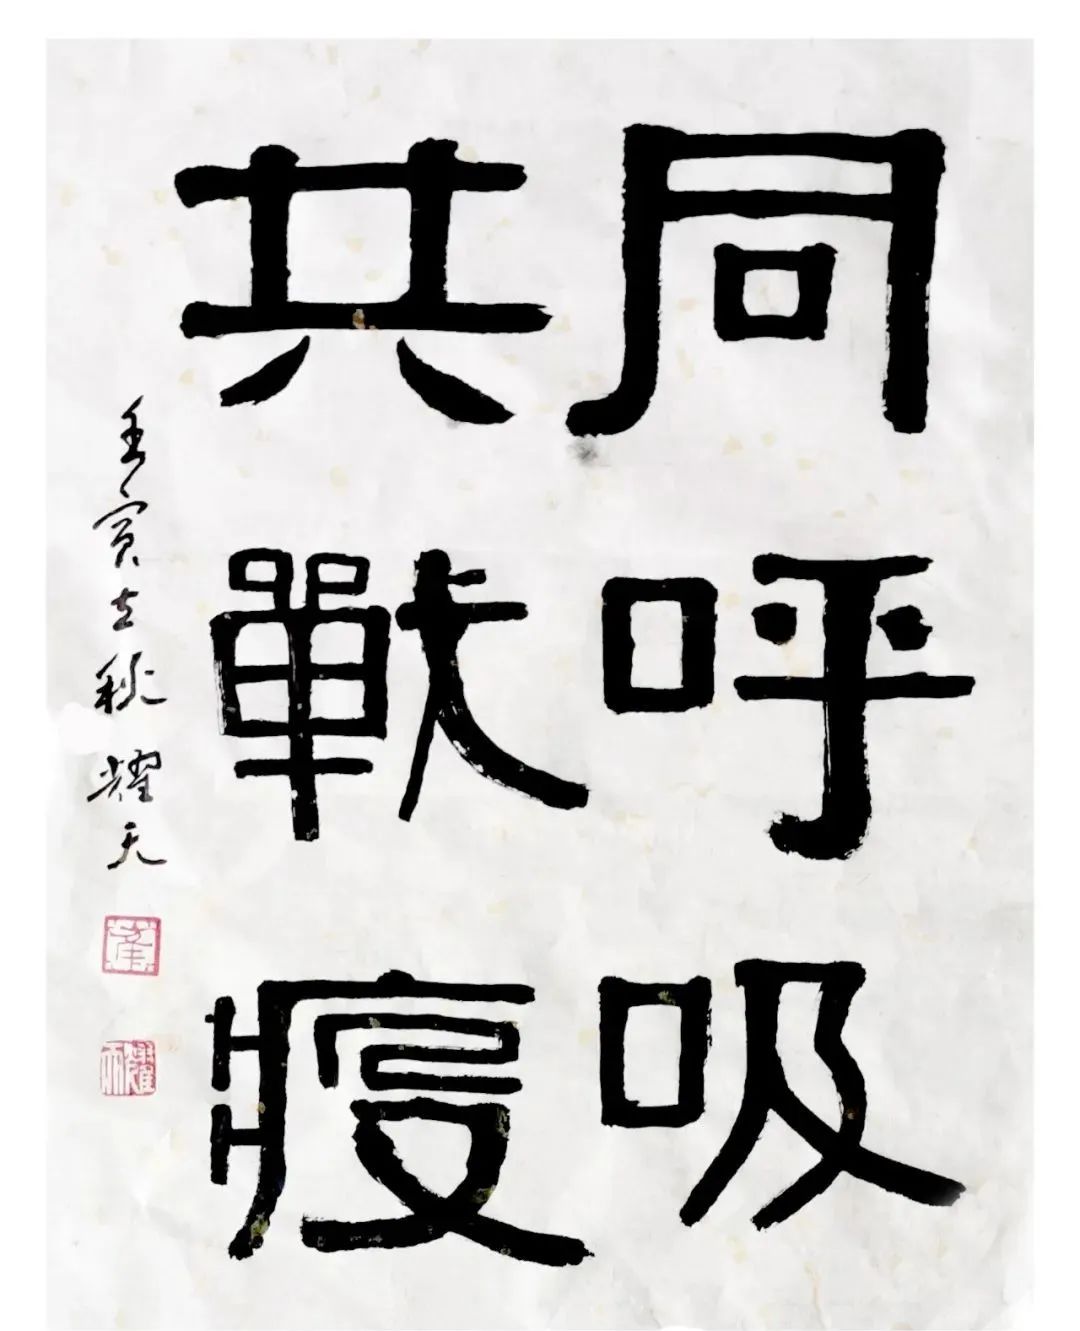 同呼吸
共戰疫
壬寅立秋耀天